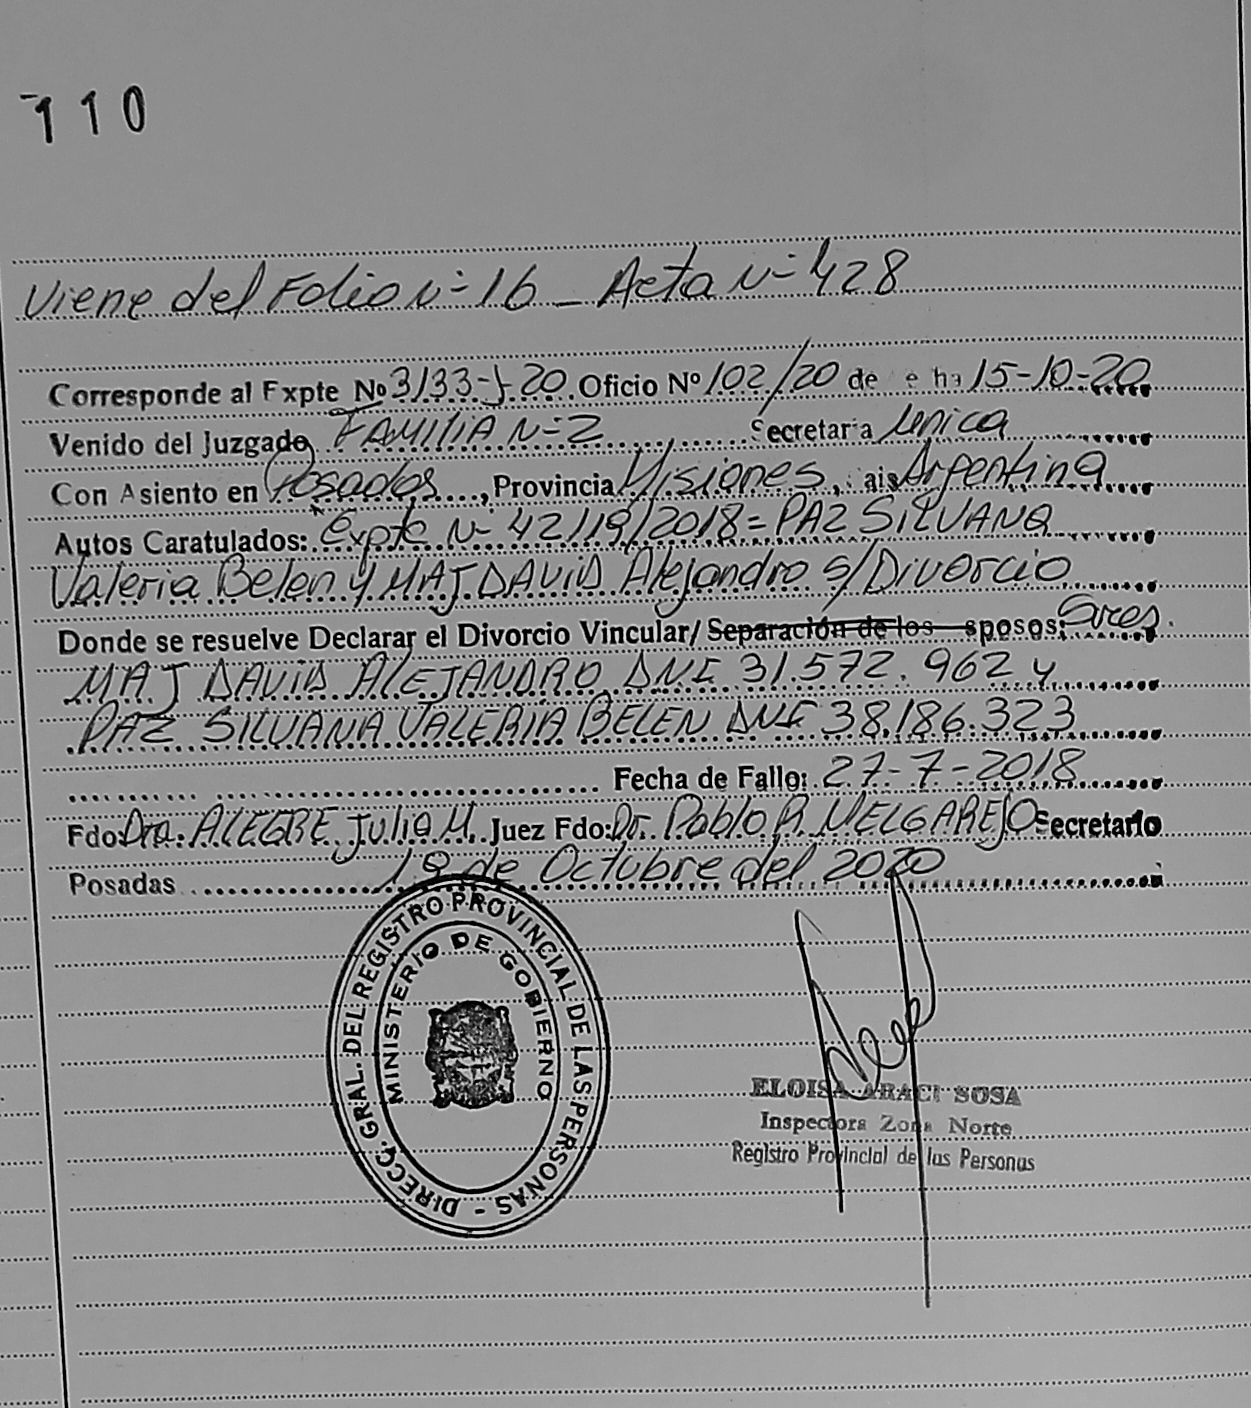 110
Viene del Folio N° 16 - Acta N° 428
Corresponde al Expte No 3133-J-20 Oficio Nº 102/20 de e ha 15-10-20
Venido del Juzgado FAMILIA N-2 Secretaria Unica
Con Asiento en Posadas, Provincia Misiones, ais Argentina
Autos Caratulados: Expte N- 42119/2018= PAZ SILVANA
Valeria Belen y MAJ DAVID Alejandro s/Divorcio
Donde se resuelve Declarar el Divorcio Vincular/ Separación de los sposos: Sres.
MAJ DAVID ALEJANDRO DNI 31.572.962 y
PAZ SILVANA VALERIA BELEN DNI 38.186.323
Fecha de Fallo: 27-7-2018
Fdo: Dra. ALEGRE Julia M. Juez Fdo: Dr. Pablo R. MELGAREJO Secretario
Posadas 19 de Octubre del 2020
DIRECC. GRAL. DEL REGISTRO PROVINCIAL DE LAS PERSONAS -
MINISTERIO DE GOBIERNO
ELOISA ARACI SOSA
Inspectora Zona Norte
Registro Provincial de las Personas